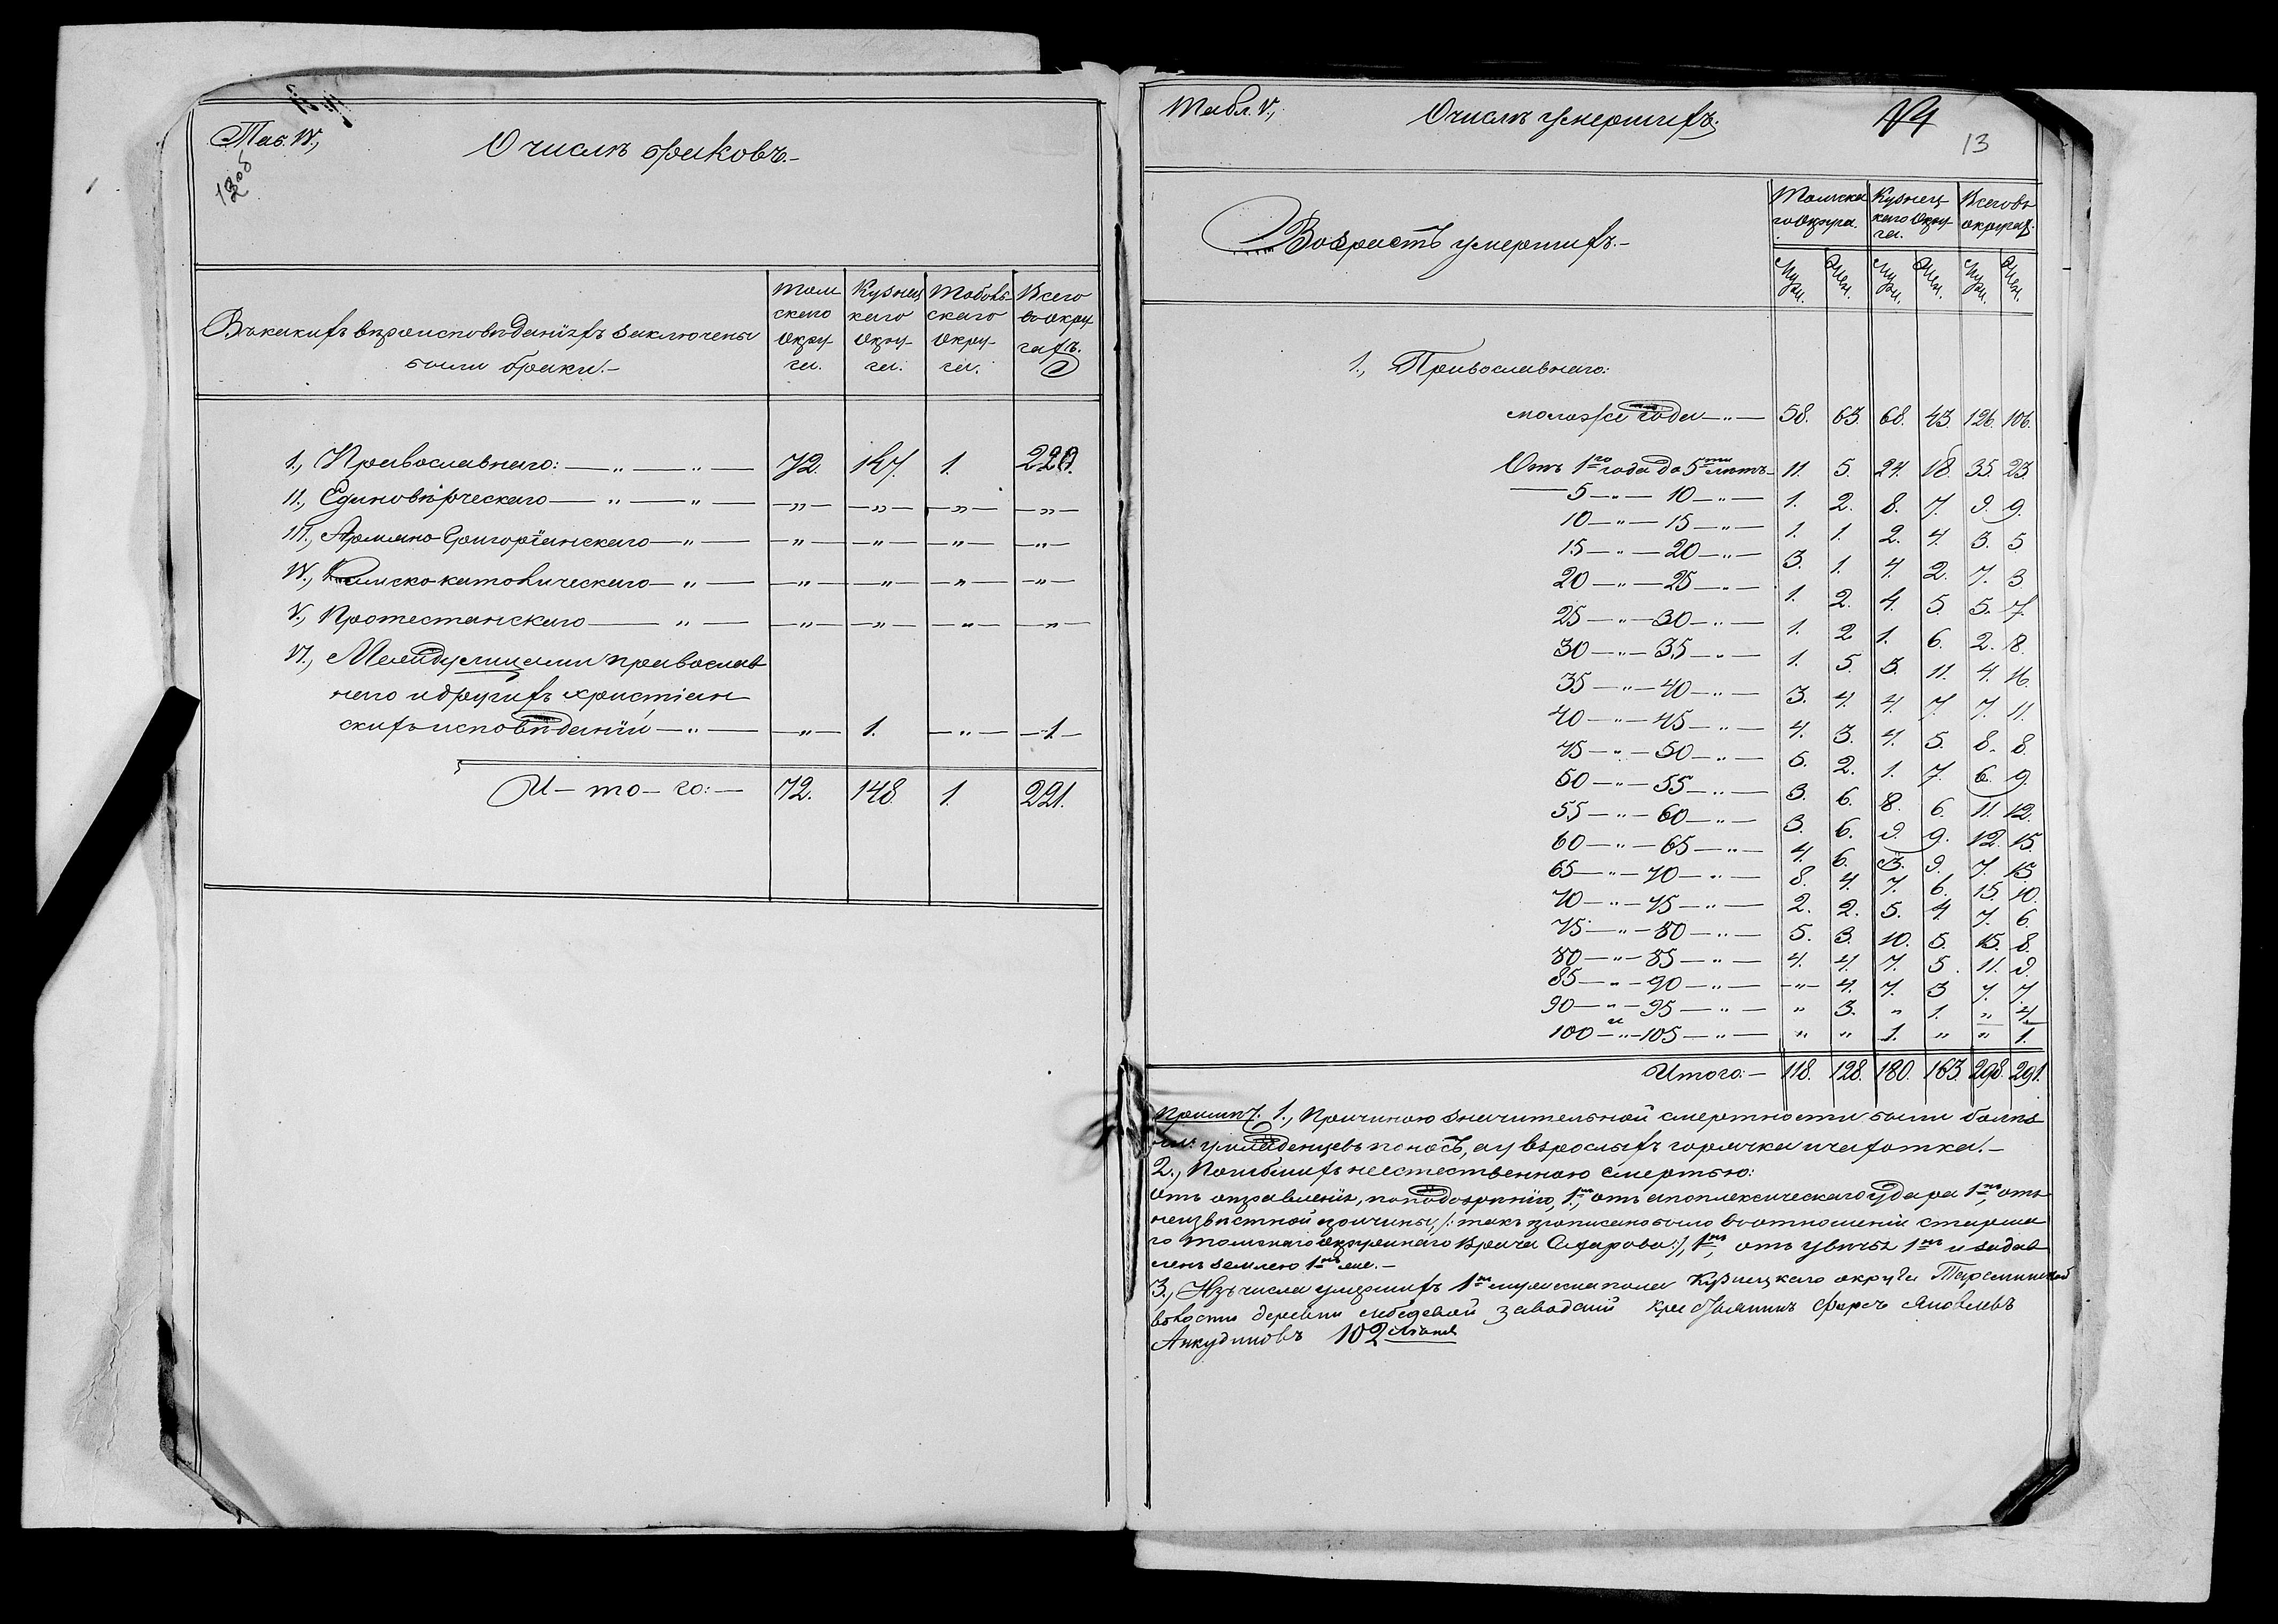 Таб. IV.,
О числѣ браковъ.—
12 об
Въ какихъ вѣроисповѣданіяхъ заключены
были браки.—
Томскаго Округа. Кузнецкаго Округа. Тобольскаго Округа. Всего въ округахъ.
1., Православнаго: — „ — „ — 72. 147. 1. 220.
II., Единовѣрческаго — „ — „ — „ — „ — „ — „ —
III., Армяно-Григоріанскаго — „ — „ — „ — „ — „ —
IV., Римско-католическаго — „ — „ — „ — „ — „ —
V., Протестанскаго — „ — „ — „ — „ — „ —
VI., Между лицами православ
наго и другихъ христіан
скихъ исповѣданій — „ — „ — 1. — „ — 1. —
И — то — го: — 72. 148. 1. 221.
Табл. V.,
О числѣ умершихъ.
13
Возрастъ умершихъ.—
Томскаго Округа. Кузнецкаго Округа. Всего въ округахъ.
Муж. Жен. Муж. Жен. Муж. Жен.
1., Православнаго:
моложе года — „ — 58. 63. 68. 43. 126. 106.
Отъ 1го года до 5ти лѣтъ — 11. 5. 24. 18. 35. 23.
5 — „ — 10 — „ — 1. 2. 8. 7. 9. 9.
10 — „ — 15 — „ — 1. 1. 2. 4. 3. 5
15 — „ — 20 — „ — 3. 1. 4. 2. 7. 3
20 — „ — 25 — „ — 1. 2. 4. 5. 5. 7.
25 — „ — 30 — „ — 1. 2 1. 6. 2. 8.
30 — „ — 35 — „ — 1. 5. 3. 11. 4. 16.
35 — „ — 40 — „ — 3. 4. 4. 7. 7. 11.
40 — „ — 45 — „ — 4. 3. 4. 5. 8. 8.
45 — „ — 50 — „ — 5. 2. 1. 7. 6. 9.
50 — „ — 55 — „ — 3. 6. 8. 6. 11. 12.
55 — „ — 60 — „ — 3. 6. 9. 9. 12. 15.
60 — „ — 65 — „ — 4. 6. 3. 9. 7. 15
65 — „ — 70 — „ — 8. 4. 7. 6. 15. 10.
70 — „ — 75 — „ — 2. 2. 5. 4. 7. 6.
75 — „ — 80 — „ — 5. 3. 10. 5. 15. 8.
80 — „ — 85 — „ — 4. 4. 7. 5. 11. 9.
85 — „ — 90 — „ — „ — 4. 7. 3 7. 7.
90 — „ — 95 — „ — „ 3. „ 1. „ 4.
100 — „ — 105 — „ — „ „ 1. „ „ 1.
Итого: — 118. 128. 180. 163. 298. 291.
Примѣч. 1., Причиною значительной смертности были болѣз
ни: у младенцевъ поносъ, а у взрослыхъ горячка и чахотка.—
2., Погибшихъ неестественною смертью:
отъ отравленія, по подозрѣнію, 1нъ, отъ апоплексическаго удара 1нъ, отъ
неизвѣстной причины, /: такъ прописано было въ отношеніи старша
го Томскаго окружнаго Врача :/, 1нъ, отъ увѣчья 1нъ и задав
ленъ землею 1нъ же.—
3., Изъ числа умершихъ 1нъ мужеска пола Кузнецкаго округа
волости деревни Лебедевой крестьянинъ Яковлевъ
Анкудиновъ 102 лѣтъ